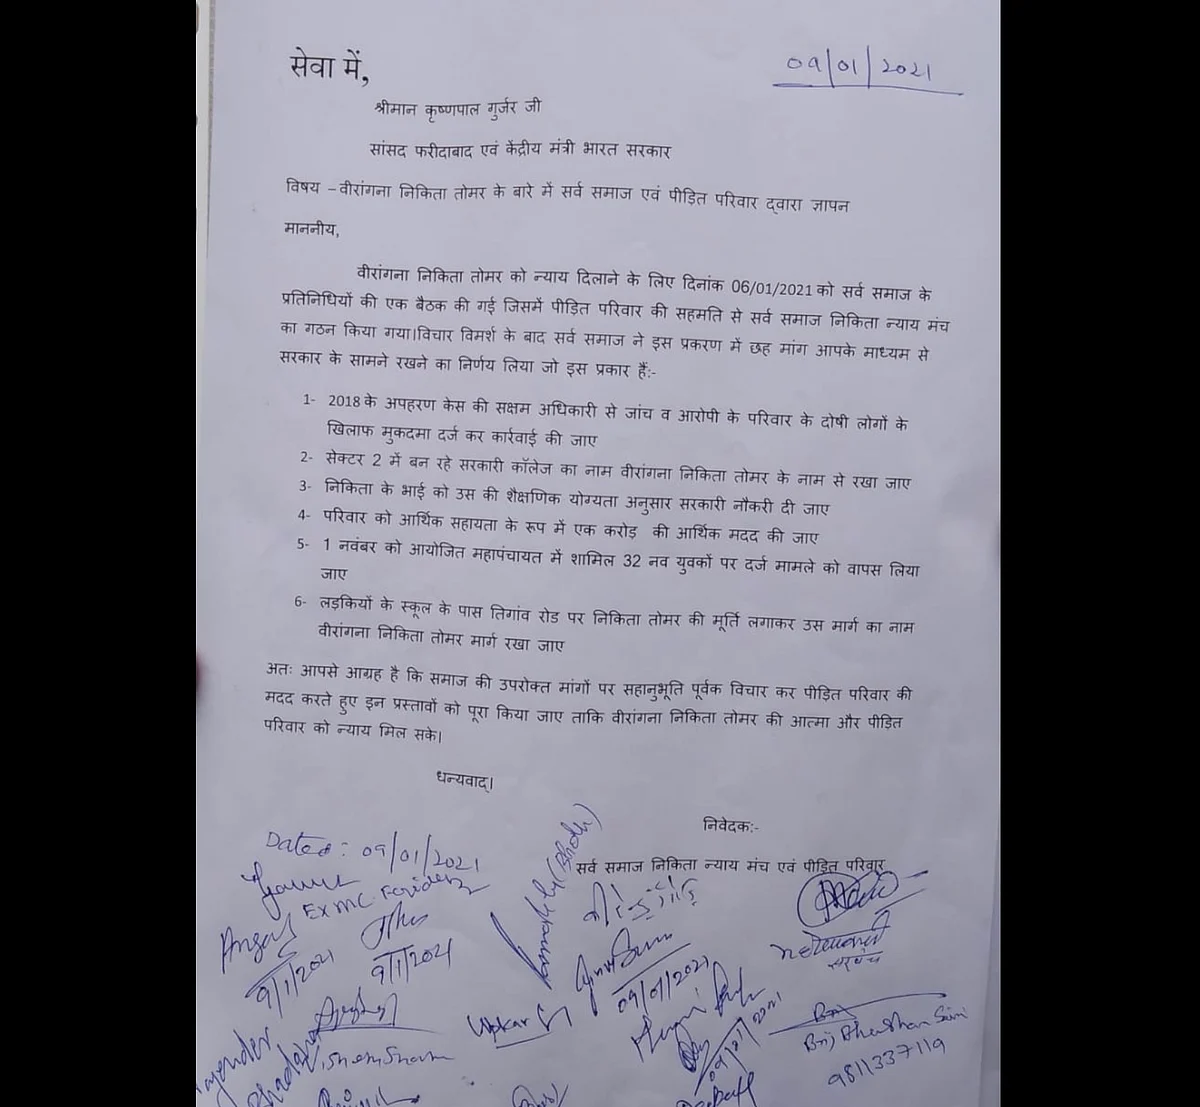 09/01/2021
सेवा में,
श्रीमान कृष्णपाल गुर्जर जी
सांसद फरीदाबाद एवं केंद्रीय मंत्री भारत सरकार
विषय – वीरांगना निकिता तोमर के बारे में सर्व समाज एवं पीड़ित परिवार द्वारा ज्ञापन
माननीय,
वीरांगना निकिता तोमर को न्याय दिलाने के लिए दिनांक 06/01/2021 को सर्व समाज के
प्रतिनिधियों की एक बैठक की गई जिसमें पीड़ित परिवार की सहमति से सर्व समाज निकिता न्याय मंच
का गठन किया गया।विचार विमर्श के बाद सर्व समाज ने इस प्रकरण में छह मांग आपके माध्यम से
सरकार के सामने रखने का निर्णय लिया जो इस प्रकार हैं:-
1- 2018 के अपहरण केस की सक्षम अधिकारी से जांच व आरोपी के परिवार के दोषी लोगों के
खिलाफ मुकदमा दर्ज कर कार्रवाई की जाए
2- सेक्टर 2 में बन रहे सरकारी कॉलेज का नाम वीरांगना निकिता तोमर के नाम से रखा जाए
3- निकिता के भाई को उस की शैक्षणिक योग्यता अनुसार सरकारी नौकरी दी जाए
4- परिवार को आर्थिक सहायता के रूप में एक करोड़ की आर्थिक मदद की जाए
5- 1 नवंबर को आयोजित महापंचायत में शामिल 32 नव युवकों पर दर्ज मामले को वापस लिया
जाए
6- लड़कियों के स्कूल के पास तिगांव रोड पर निकिता तोमर की मूर्ति लगाकर उस मार्ग का नाम
वीरांगना निकिता तोमर मार्ग रखा जाए
अतः आपसे आग्रह है कि समाज की उपरोक्त मांगों पर सहानुभूति पूर्वक विचार कर पीड़ित परिवार की
मदद करते हुए इन प्रस्तावों को पूरा किया जाए ताकि वीरांगना निकिता तोमर की आत्मा और पीड़ित
परिवार को न्याय मिल सके।
धन्यवाद्।
निवेदक:-
सर्व समाज निकिता न्याय मंच एवं पीड़ित परिवार
Dated: 09/01/2021
Ex MC
9/1/2021
9/1/2021
09/01/2021
सरपंच
09/01/2021
9811337119